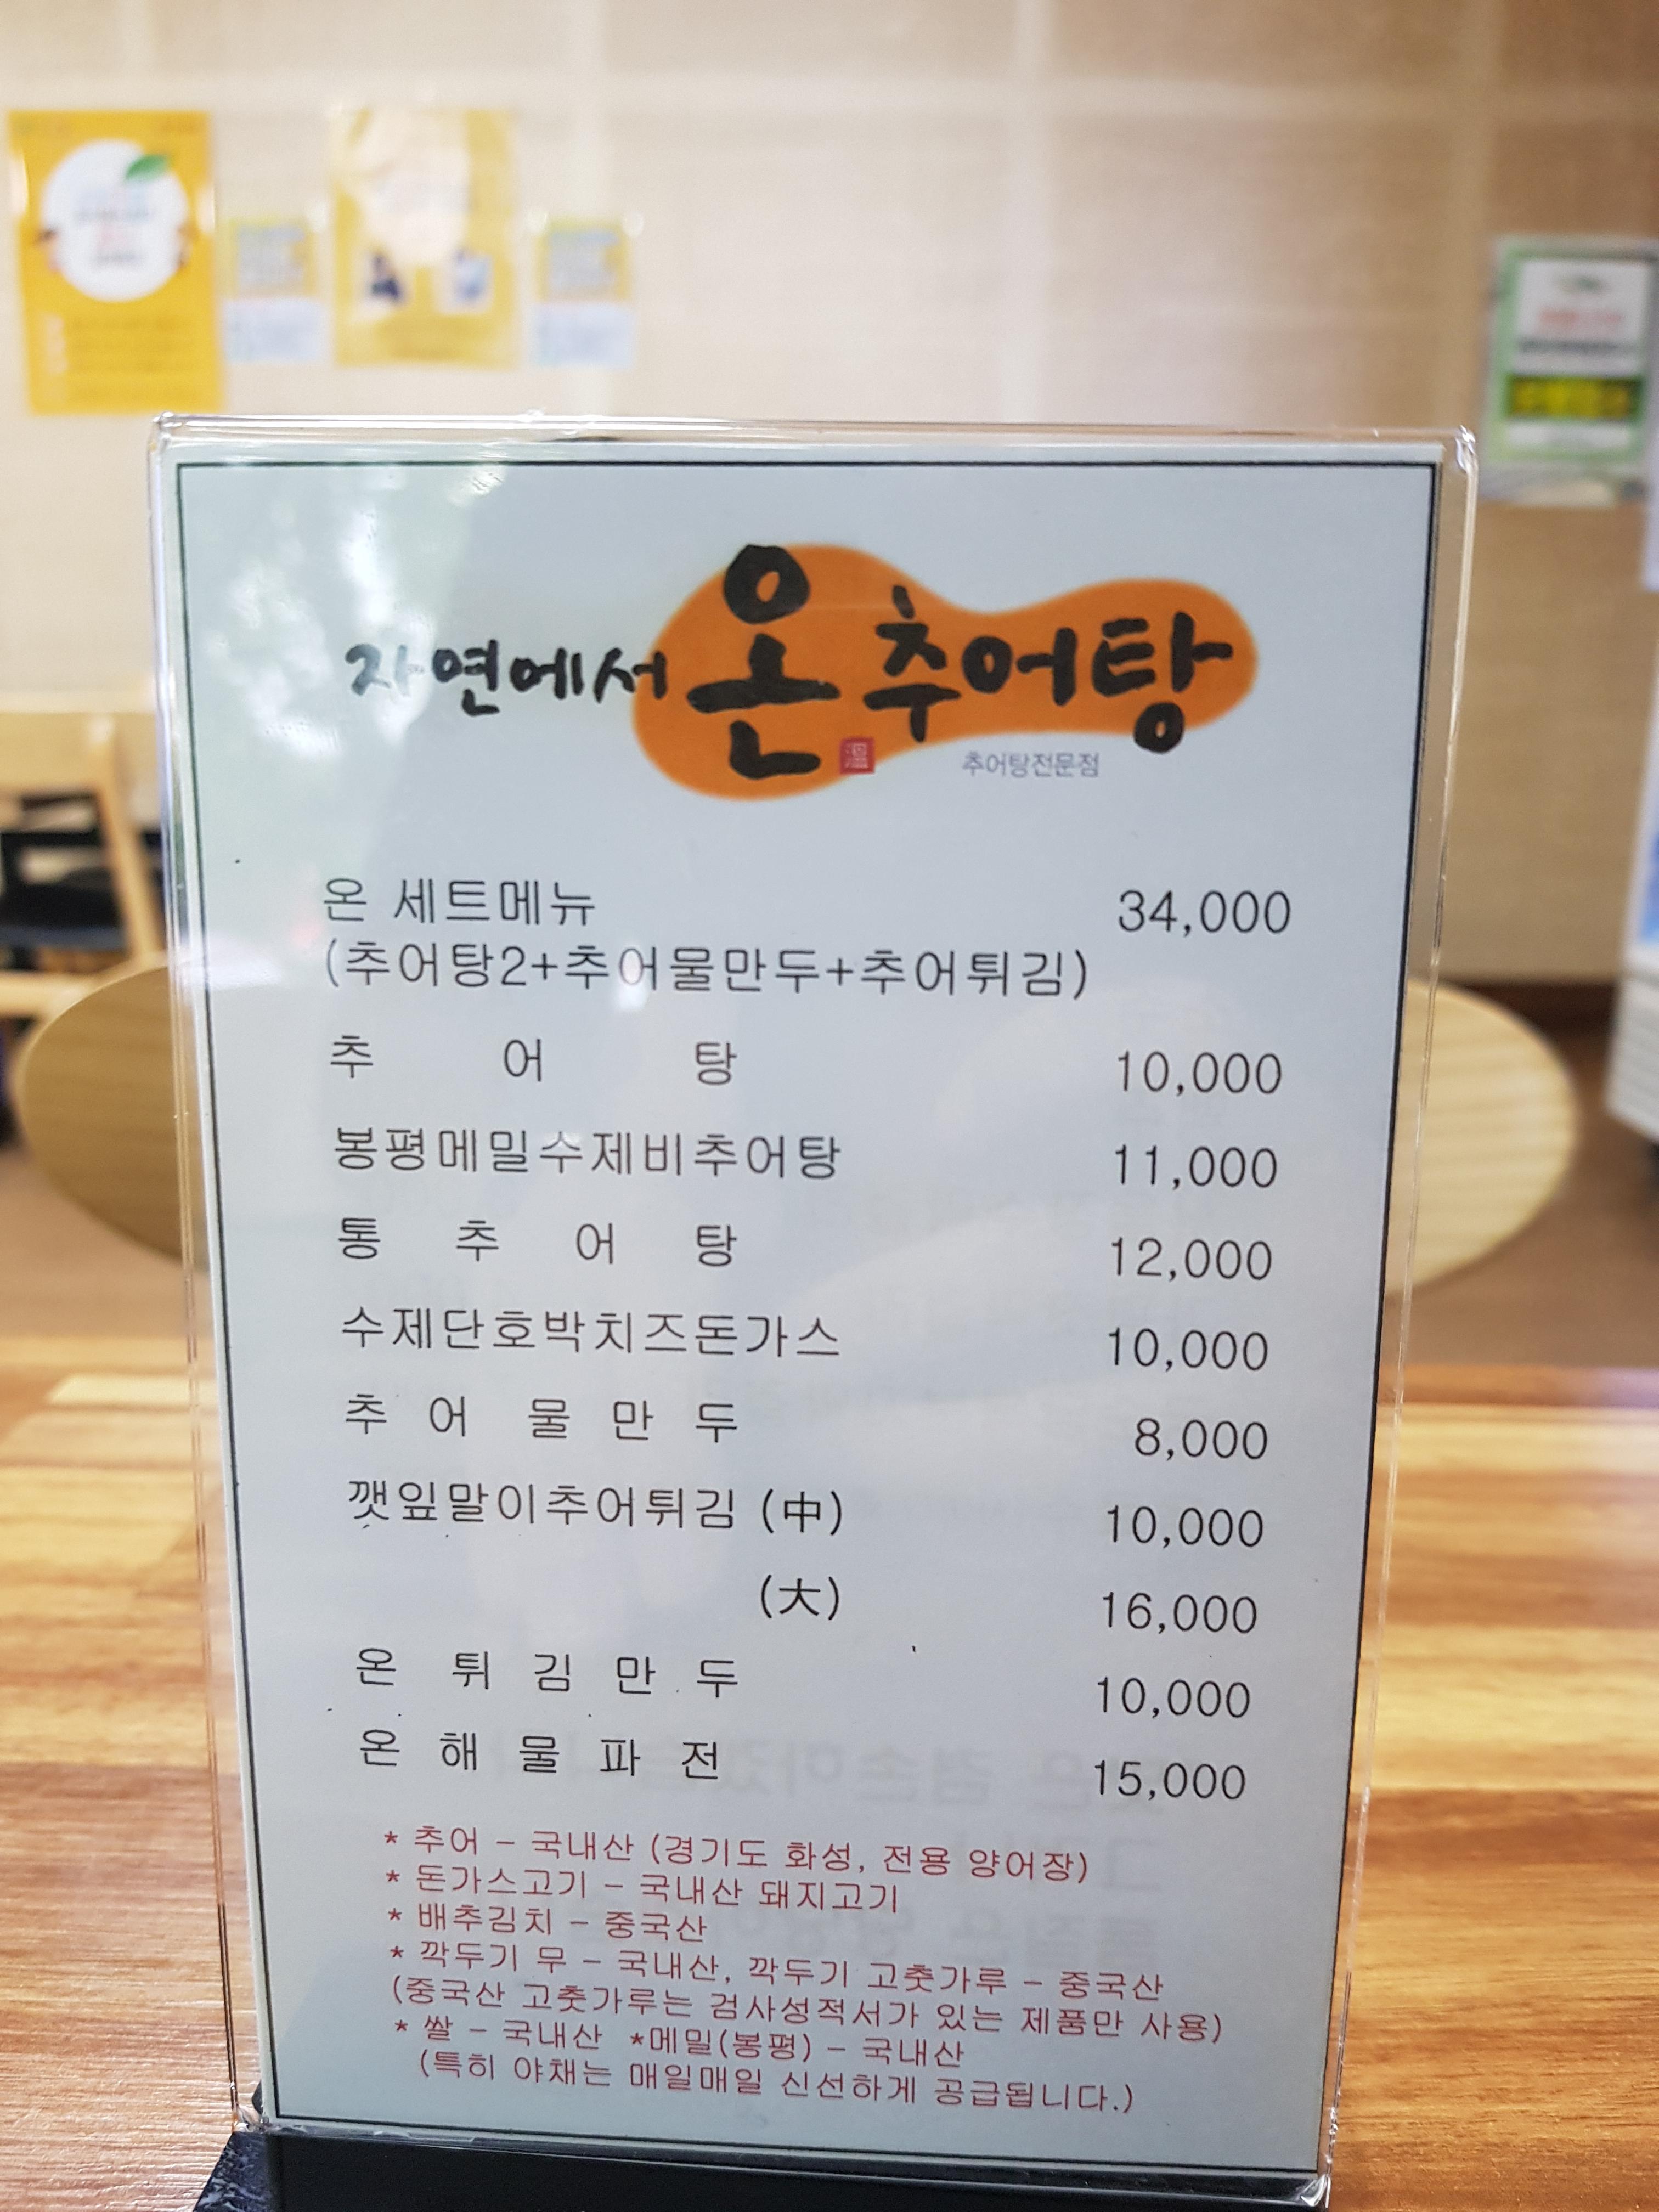 자연에서 온 추어탕
溫
추어탕전문점
온 세트메뉴 34,000
(추어탕2+추어물만두+추어튀김)
추 어 탕 10,000
봉평메밀수제비추어탕 11,000
통 추 어 탕 12,000
수제단호박치즈돈가스 10,000
추 어 물 만 두 8,000
깻잎말이추어튀김 (中) 10,000
(大) 16,000
온 튀 김 만 두 10,000
온 해 물 파 전 15,000
* 추어 - 국내산 (경기도 화성, 전용 양어장)
* 돈가스고기 - 국내산 돼지고기
* 배추김치 - 중국산
* 깍두기 무 - 국내산, 깍두기 고춧가루 - 중국산
(중국산 고춧가루는 검사성적서가 있는 제품만 사용)
* 쌀 - 국내산 *메밀(봉평) - 국내산
(특히 야채는 매일매일 신선하게 공급됩니다.)